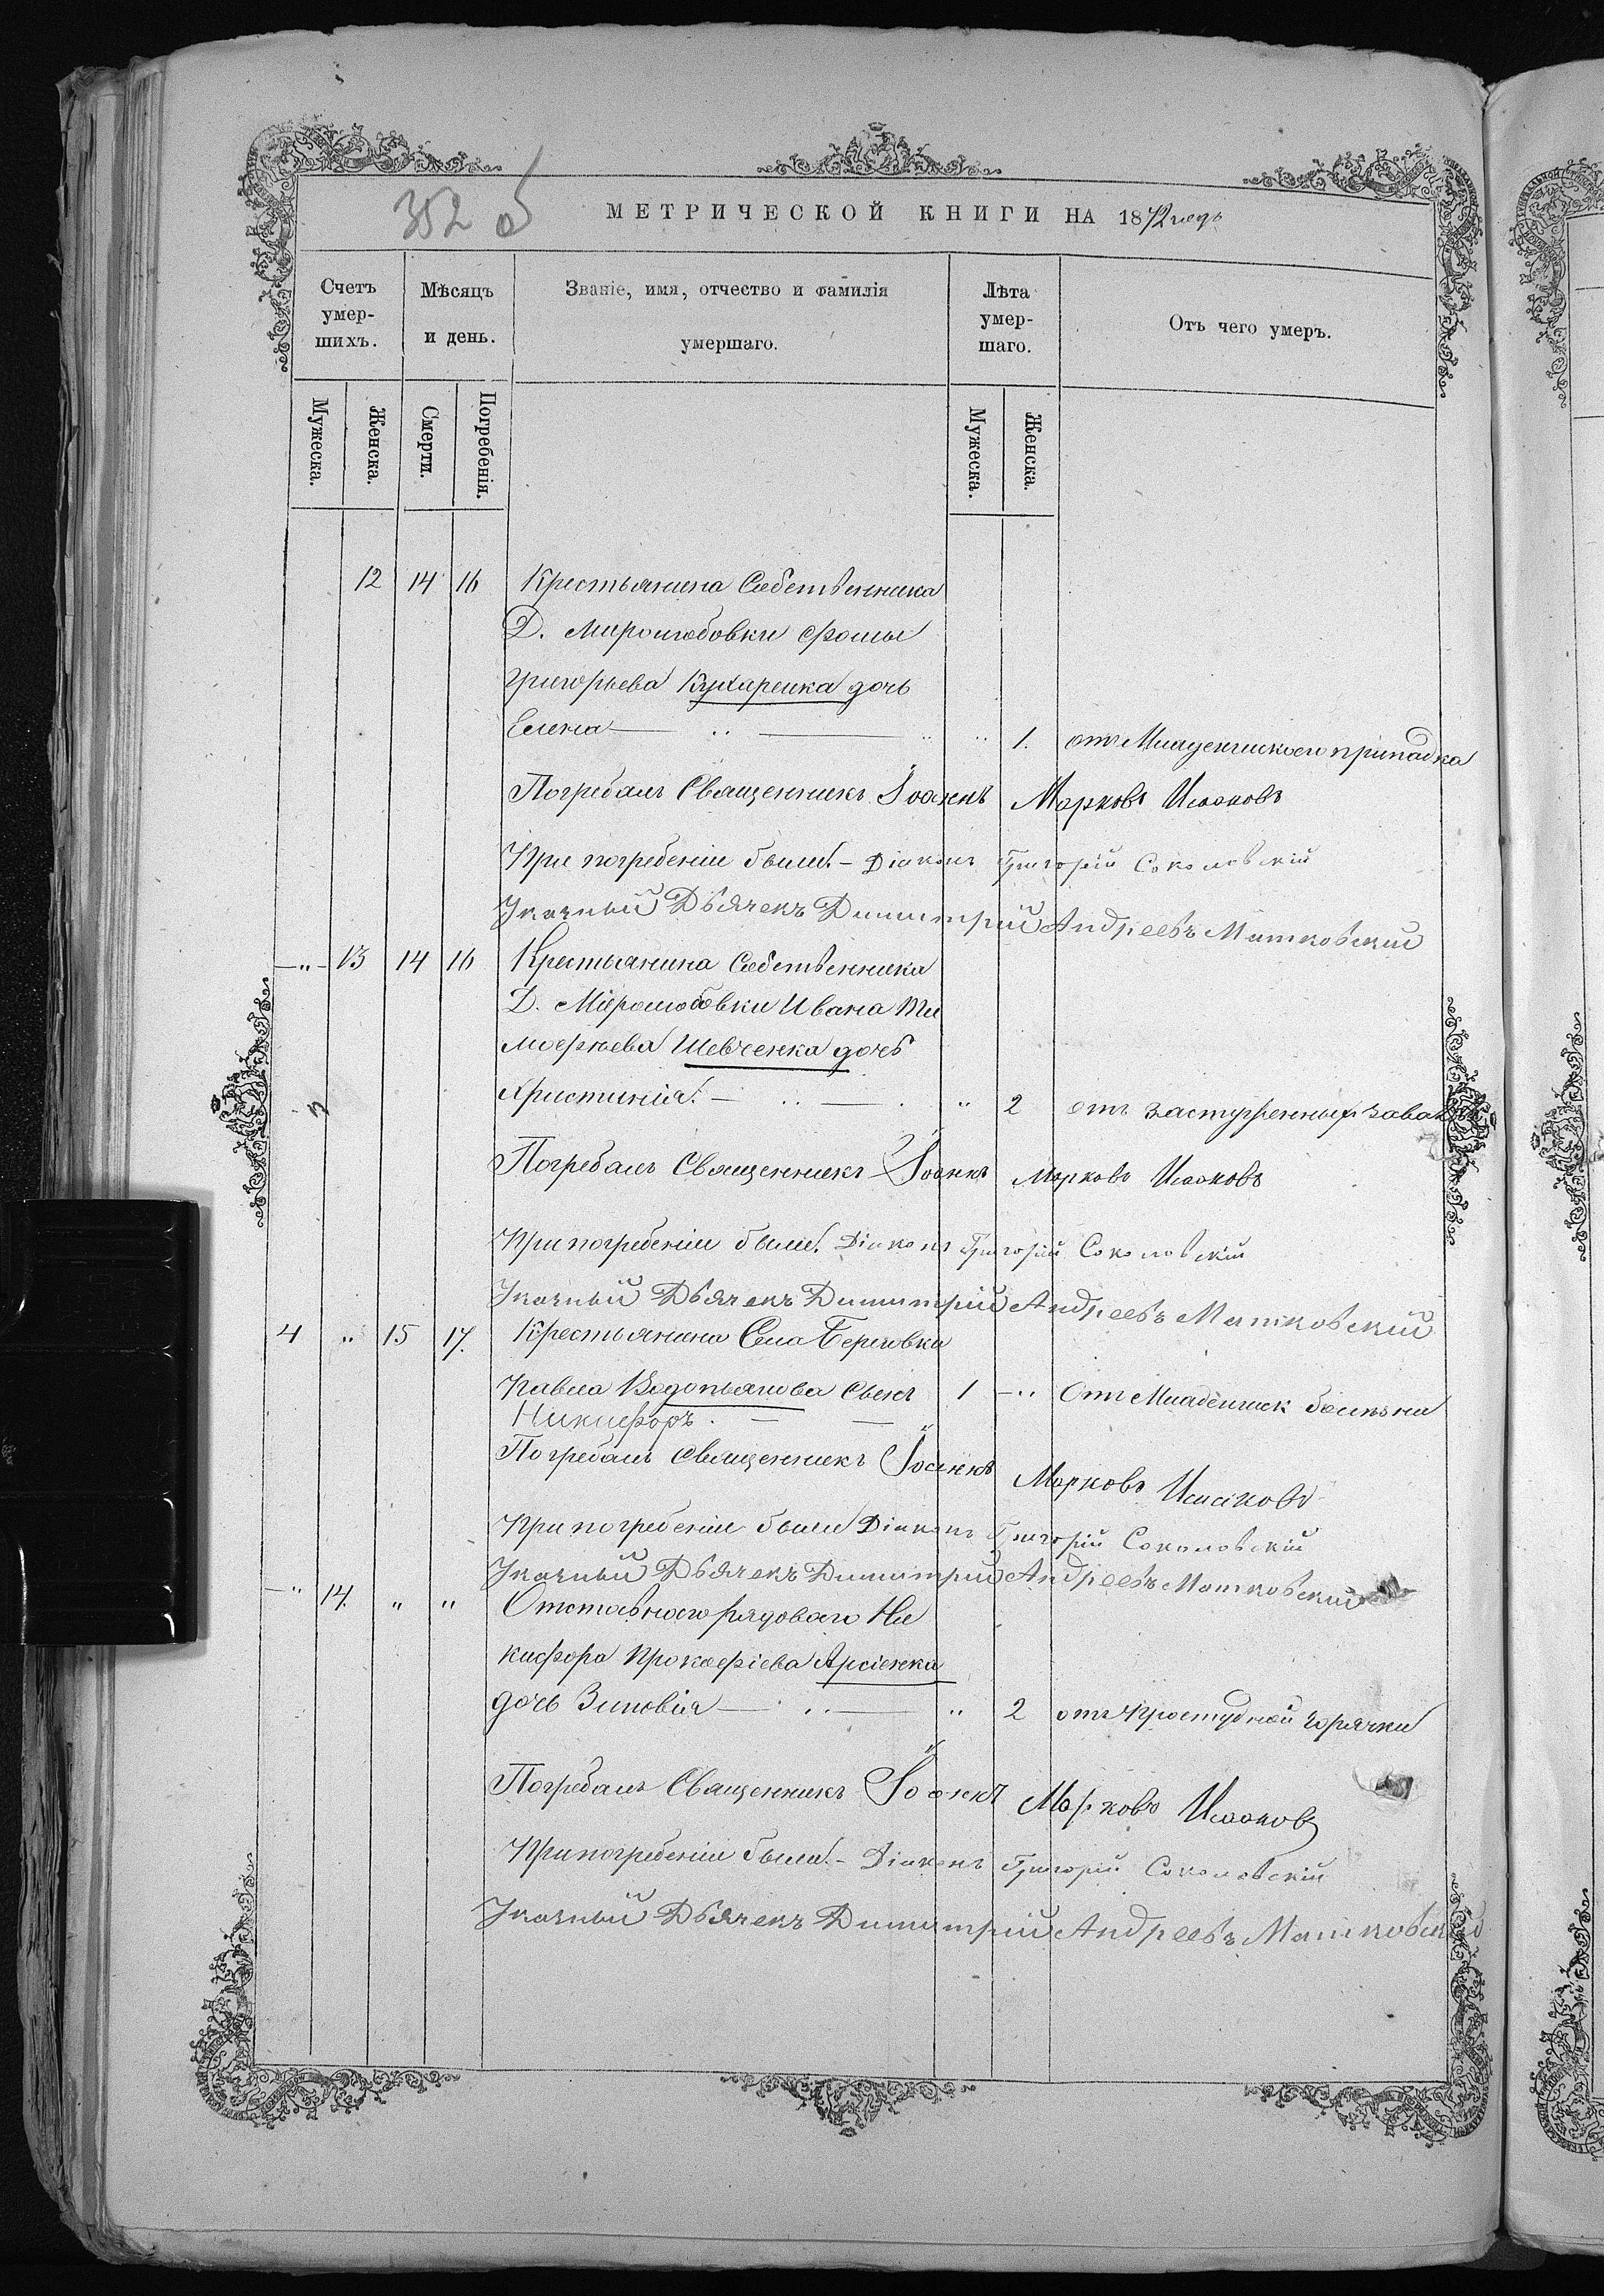 352 об
МЕТРИЧЕСКОЙ КНИГИ НА 1872 годъ
Счетъ умер-шихъ. Мѣсяцъ и день. Званіе, имя, отчество и фамилія умершаго. Лѣта умер-шаго. Отъ чего умеръ.
Мужеска. Женска. Смерти. Погребенія. Мужеска. Женска.
12 14 16 Крестьянина Собственника
Д. Миролюбовки Фомы
Григорьева Кухаренка дочь
Елена — „ — „ „ 1. отъ Младенческого припадка
Погребалъ Священникъ Іоаннъ Марковъ Исаковъ
При погребеніи были: – Діаконъ Григорій Соколовскій
Указный Дьячекъ Димитрій Андреевъ Матковский
„ 13 14 16 Крестьянина Собственника
Д. Миролюбовки Ивана Ти
мофѣева Шевченка дочь
Христинія. — „ — „ 2 отъ застуженных
Погребалъ Священникъ Іоаннъ Марковъ Исаковъ
При погребеніи были: Діаконъ Григорій Соколовскій
Указный Дьячекъ Димитрій Андреевъ Матковский
4 „ 15 17. Крестьянина Села
Павла Водопьянова Сынъ 1 „ Отъ Младенческ болѣзни
Никифоръ. — —
Погребалъ Священникъ Іоаннъ Марковъ Исаковъ
При погребеніи были Діаконъ Григорій Соколовскій
Указный Дьячекъ Димитрий Андреевъ Матковский
„ 14. „ „ Отставного рядоваго Ни
кифора Прокофіева Арсіенка
дочь Зиновія — „ — „ 2 отъ простудной горячки
Погребалъ Священникъ Іоаннъ Марковъ Исаковъ
При погребеніи были: – Діаконъ Григорій Соколовскій
Указный Дьячекъ Димитрій Андреевъ Матковский